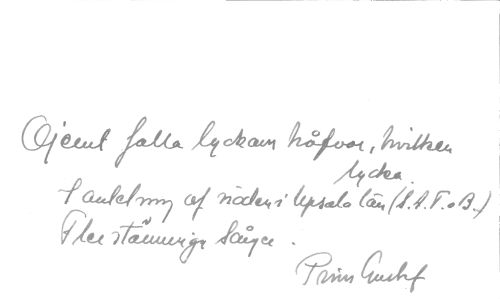 Ojemt falla lyckans håfvor, hvilken
lycka.
I anledning af nöden i Upsala län (S.A.T.o.B.)
Flerstämmiga sånger.
Prins Gustaf